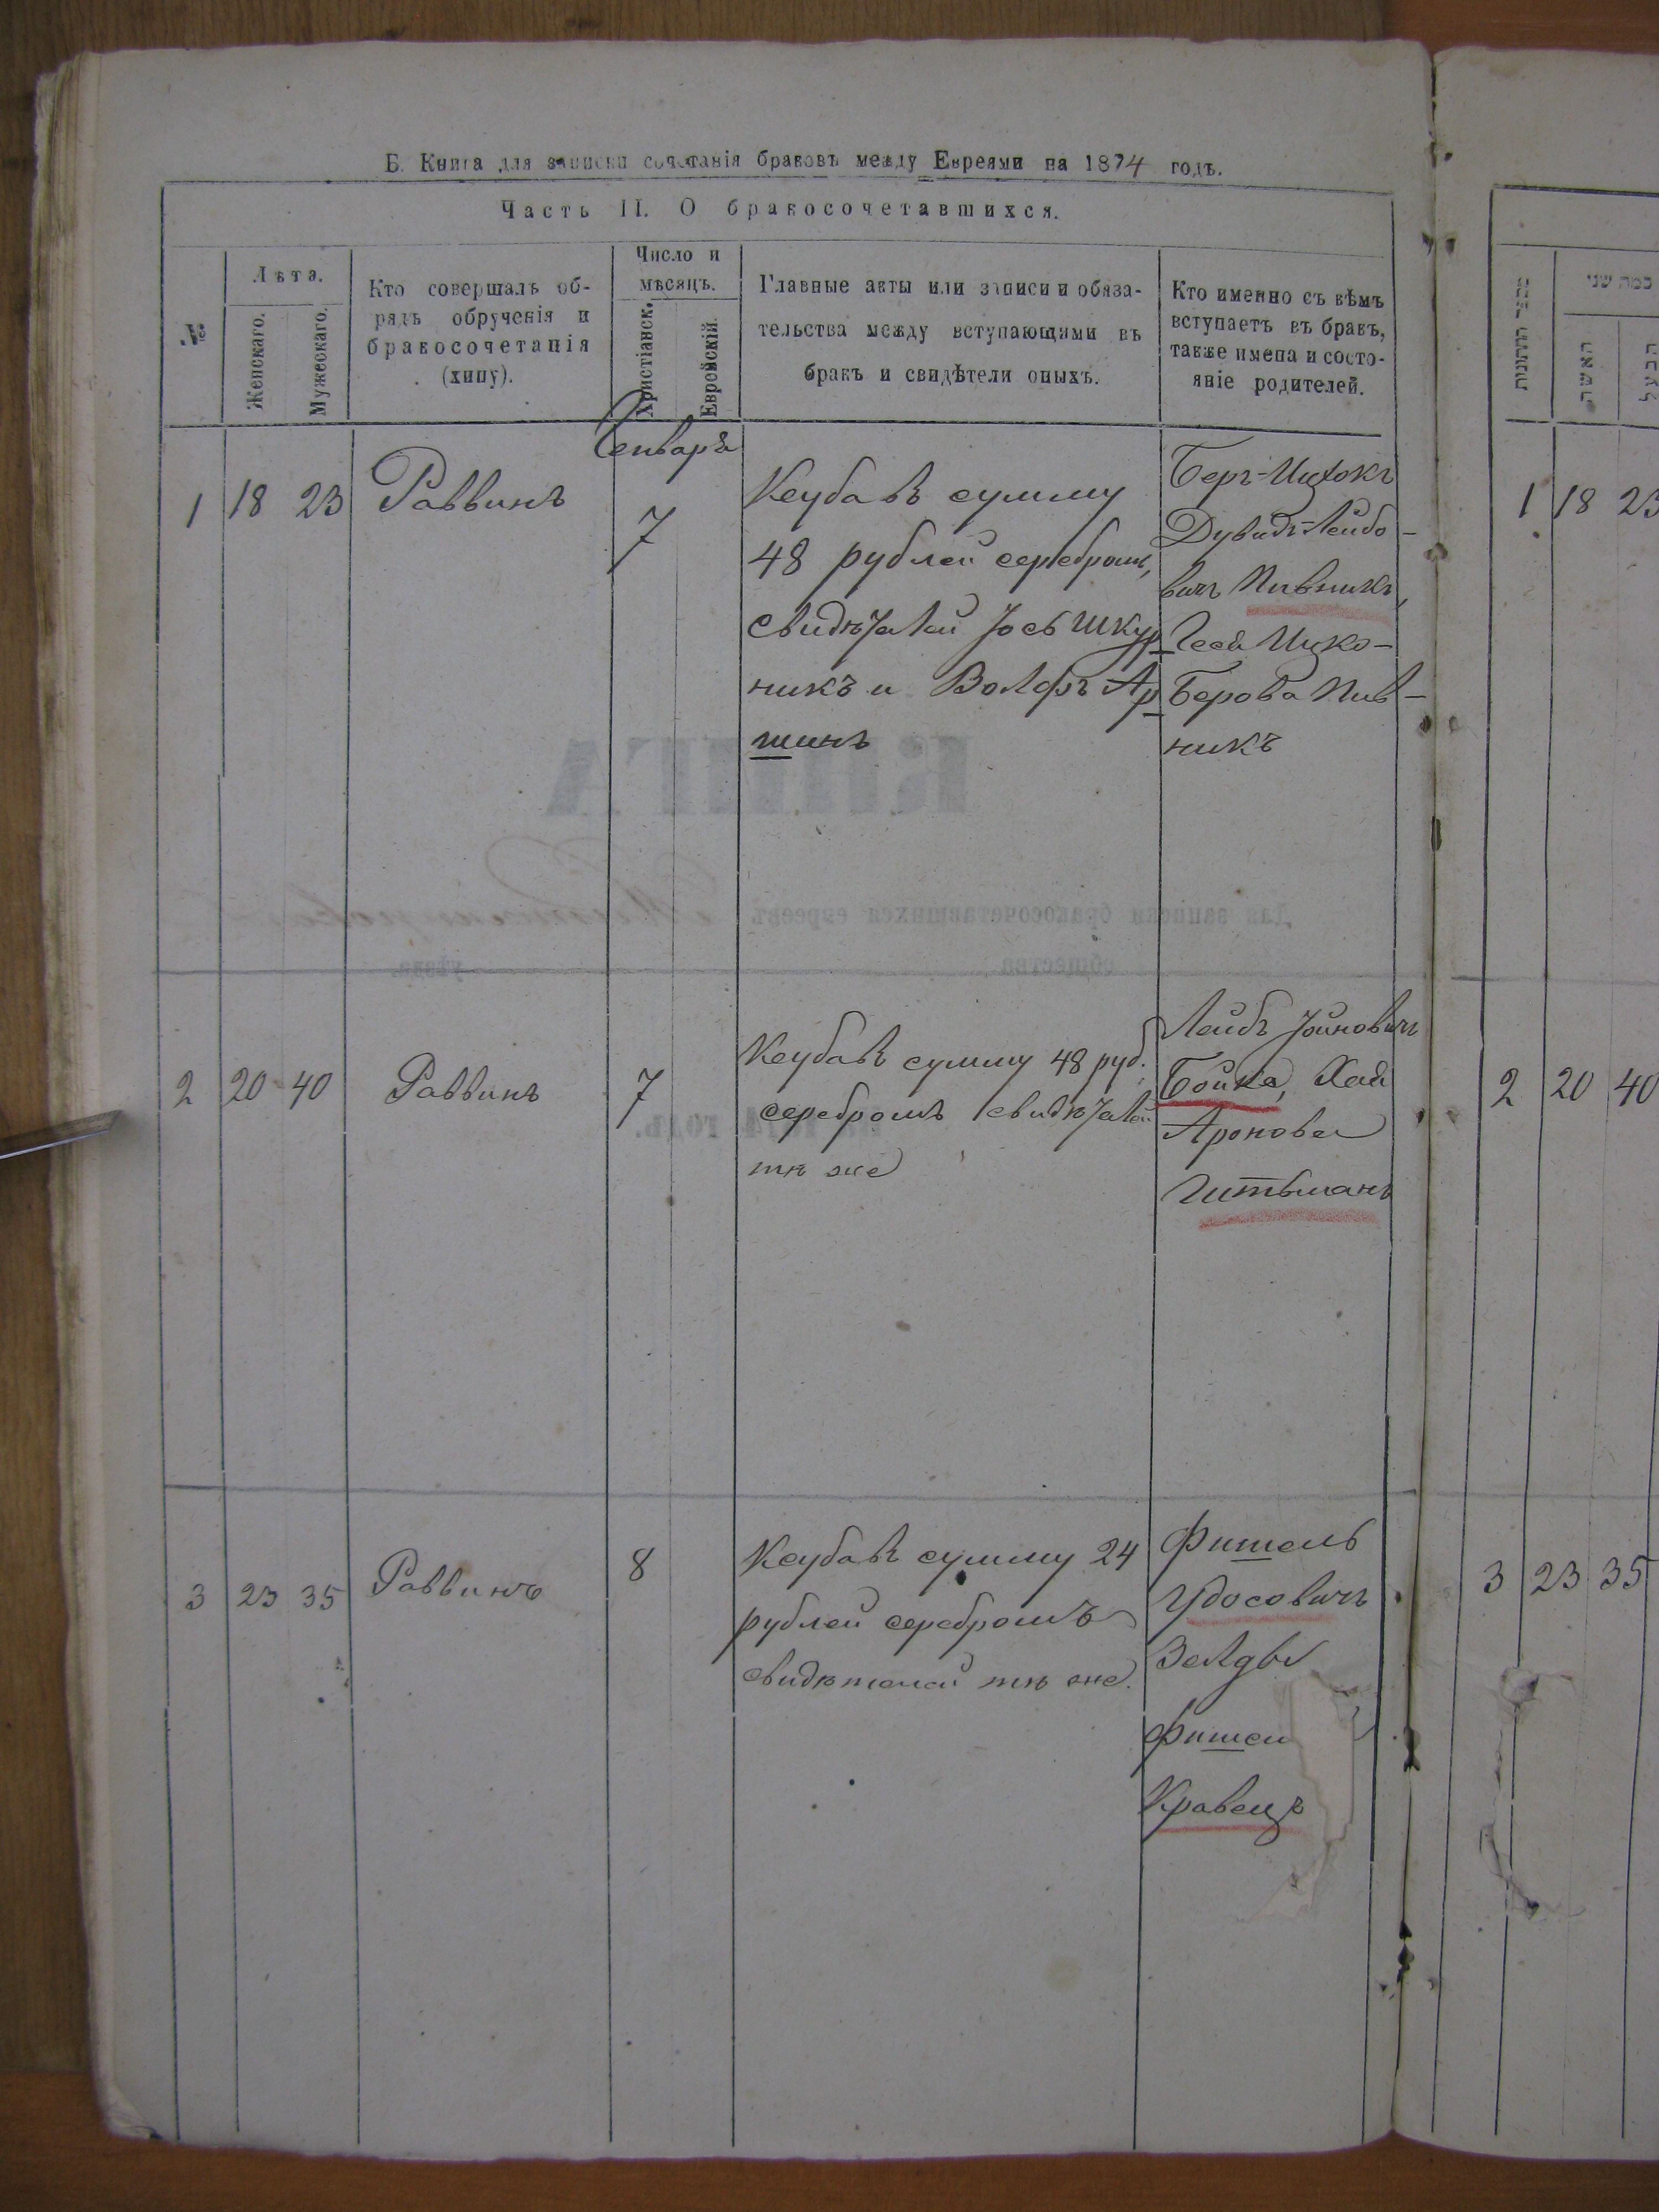 Б. Книга для записки сочетанія браковъ между Евреями на 1874 годъ.
Часть II. О бракосочетавшихся.
№
Лѣта.
Женскаго.
Мужескаго.
Кто совершалъ об-
рядъ обрученія и
бракосочетанія
(хипу).
Число и
мѣсяцъ.
Христіанск.
Еврейскій.
Главные акты или записи и обяза-
тельства между вступающими въ
бракъ и свидѣтели оныхъ.
Кто именно съ кѣмъ
вступаетъ въ бракъ,
также имена и состо-
яніе родителей.
Генваря
1 18 23 Раввинъ
7
Кеубавъ сумму
48 рублей серебромъ,
свидѣтелей Іось Шкур
никъ и Волфъ Ар
шинъ
Беръ-Ицхокъ
Дувидъ-Лейбо-
вичъ Пивникъ,
Геся Ицко-
Берова Пив-
никъ
2 20 40 Раввинъ
7
Кеубавъ сумму 48 руб.
серебромъ свидѣтелей
тѣ же
Лейбъ Іойновичъ
Бойка, Хая
Аронова
Гитьманъ
3 23 35 Раввинъ
8
Кеубавъ сумму 24
рублей серебромъ
свидѣтелей тѣ же.
Фишель
Удосовичъ
Зелды
Фишел
Кравецъ
כמה שני
האשה
הבעל
1 18 23
2 20 40
3 23 35
КНИГА
Для записки бракосочетавшихся евреевъ
общества
уѣзда
годъ.